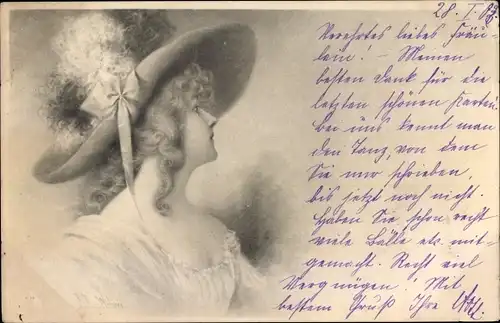 28. I. 03.
Verehrtes liebes Fräu-
lein! – Meinen
besten Dank für die
letzten schönen Karten.
Bei uns kennt man
den Tanz, von dem
Sie mir schrieben,
bis jetzt noch nicht.
Haben Sie schon recht
viele Bälle etc. mit-
gemacht. Recht viel
Vergnügen! Mit
bestem Gruß Ihre